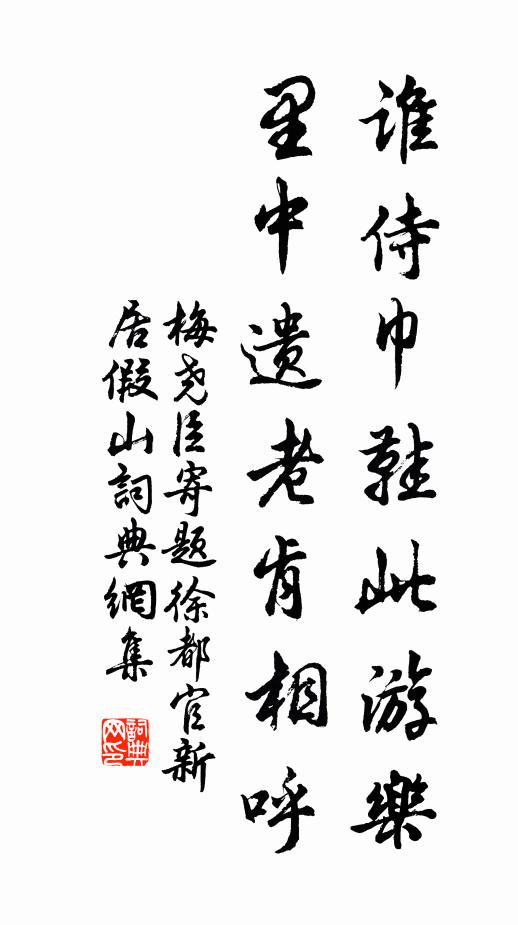 谁侍巾鞋此游樂
里中遗老肯相呼
梅尧臣寄题徐都官新
居假山詞典網集
詞典网印